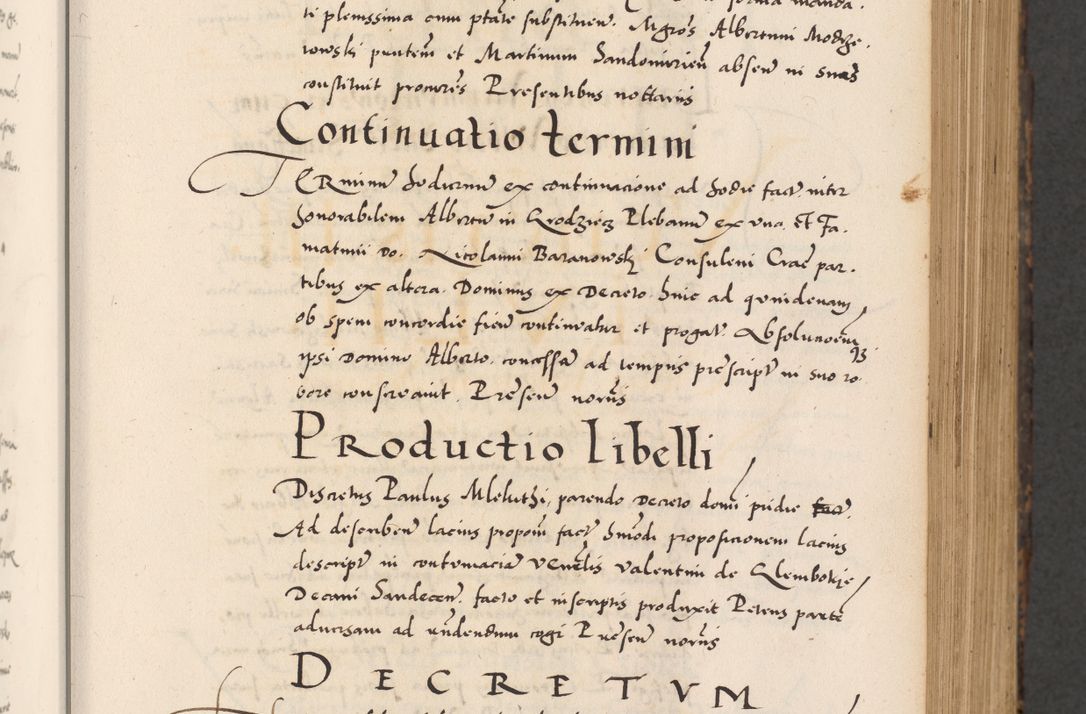 ti plenissima cum ptate substituen. Mgros Albertum Modrze.
iowski puntem et Martinum Sandomirien absen in suas
constituit procures Presentibus nottariis
Continuatio termini
TERminu hodiernu ex continuacione ad hodie fact. inter
honorabilem Albertu in Grodziecz Plebanu ex una. Et Fa.
matum do. Nicolaum Baranowski Consulem Crac par.
tibus ex altera. Dominus ex Decreto huic ad quindenam
ob spem concordie fien continuatur et progat. Absolunoemq3
ipsi Domino Alberto. concessa ad tempus prescript in suo ro.
bore conservavit. Presen noriis
Productio libelli
Discretus Paulus parendo Decreto domi pridie fact.
Ad describen lacius propom fact hmodi proposicionem lacius
descript in contumacia venlis Valentini de Glembokie
Decani Sandecen. facto et inscriptis produxit Petens parte
adversam ad rndendum cogi Presen noriis
DECRETVM